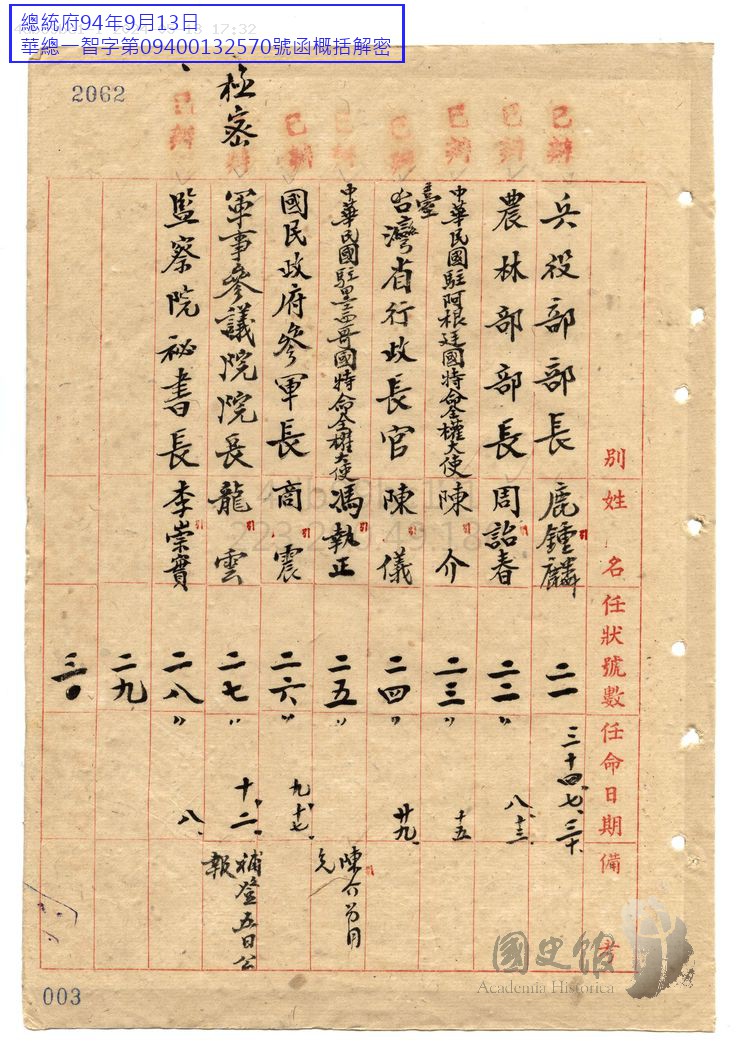 總統府94年9月13日
華總一智字第09400132570號函概括解密
2062
極密
已辦 已辦 已辦 已辦 已辦 已辦 已辦 已辦
別 姓名 任狀號數 任命日期 備考
兵役部部長 鹿鍾麟 二一 三十四、七、三十、
農林部部長 周詒春 二二 〃 八、十三、
中華民國駐阿根廷國特命全權大使 陳介 二三 〃 十五
臺灣省行政長官 陳儀 二四 〃 廿九、
中華民國駐墨西哥國特命全權大使 馮執正 二五 〃 陳介於月
國民政府參軍長 商震 二六 〃 九、十七、
軍事參議院院長 龍雲 二七 〃 十、二、 補登五日公報
監察院祕書長 李崇實 二八 〃 八、
二九
三〇
003
國史館
Academia Historica